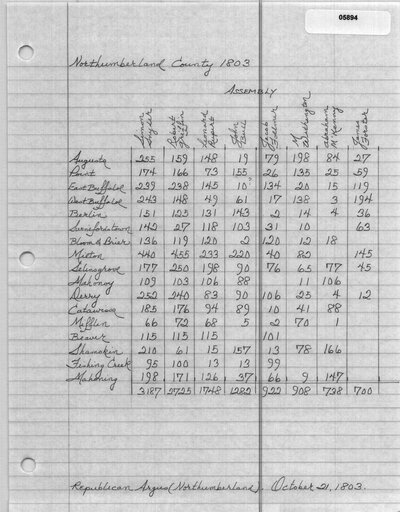 05894
Northumberland County 1803
Assembly
Simon Snyder Robert Giffen Leonard Rupert John Bull Jacob Fulmer D. Washington Abraham McKinney James Forster
Augusta 255 159 148 19 79 198 84 27
Point 174 166 73 155 26 135 25 59
East Buffalo 239 238 145 10 134 20 15 119
West Buffalo 243 148 49 61 17 138 3 194
Berlin 151 125 131 143 2 14 4 36
142 27 118 103 31 10 63
Bloom & Briar 136 119 120 2 120 12 18
Milton 440 455 233 220 40 82 145
Selinsgrove 177 250 198 90 76 65 77 45
Mahonoy 109 103 106 88 11 106
Derry 252 240 83 90 106 25 4 12
Catawissa 185 176 94 89 10 41 88
Mifflin 66 72 68 5 2 70 1
Beaver 115 115 115 101
Shamokin 210 61 15 157 13 78 166
Fishing Creek 95 100 13 13 99
Mahoning 198 171 126 37 66 9 147
3187 2725 1748 1282 922 908 738 700
Republican Argus (Northumberland). October 21, 1803.